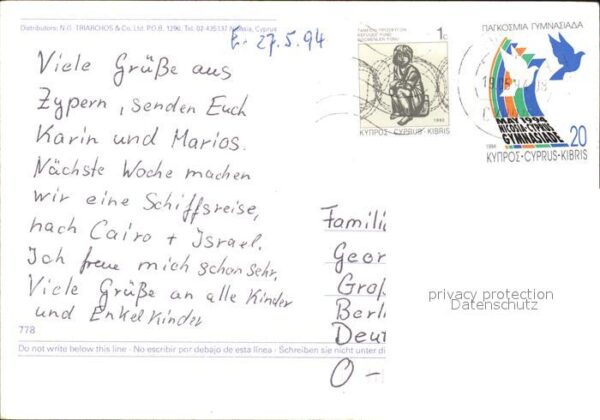 Distributors: N.G. TRIARCHOS & Co. Ltd. P.O.B. 1290, Tel. 02-435137 Nicosia, Cyprus
E. 27.5.94
Viele Grüße aus
Zypern, senden Euch
Karin und Marios.
Nächste Woche machen
wir eine Schiffsreise,
nach Cairo + Israel.
Ich freue mich schon sehr.
Viele Grüße an alle Kinder
und Enkelkinder
778
Do not write below this line - No escribir por debajo de esta línea - Schreiben sie nicht unter di
REFUGEE FUND
1c
1990
ΚΥΠΡΟΣ-CYPRUS-KIBRIS
ΠΑΓΚΟΣΜΙΑ ΓΥΜΝΑΣΙΑΔΑ
MAY 1994
NICOSIA-CYPRUS
GYMNASIADE
20
1994
ΚΥΠΡΟΣ-CYPRUS-KIBRIS
Famili
Geor
Groß
Berli
Deut
O-
privacy protection
Datenschutz